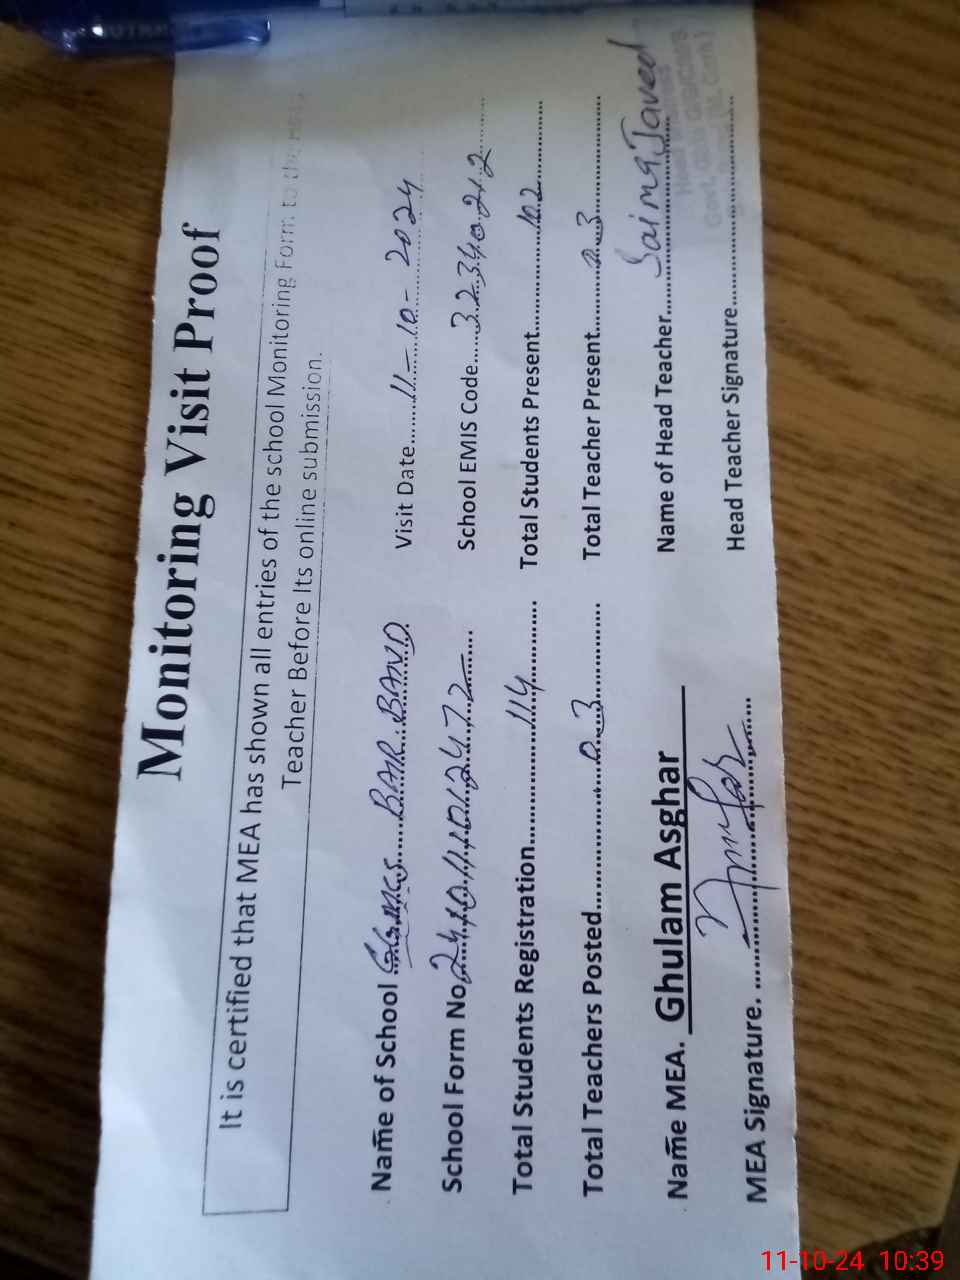 Monitoring Visit Proof
It is certified that MEA has shown all entries of the school Monitoring Form to the Head
Teacher Before Its online submission.
Name of School GGMCS BAIR BAND Visit Date 11-10-2024
School Form No 2410411012472 School EMIS Code 32340212
Total Students Registration 114 Total Students Present 102
Total Teachers Posted 03 Total Teacher Present 03
Name MEA. Ghulam Asghar Name of Head Teacher Saima Javed
MEA Signature. Head Teacher Signature
11-10-24 10:39